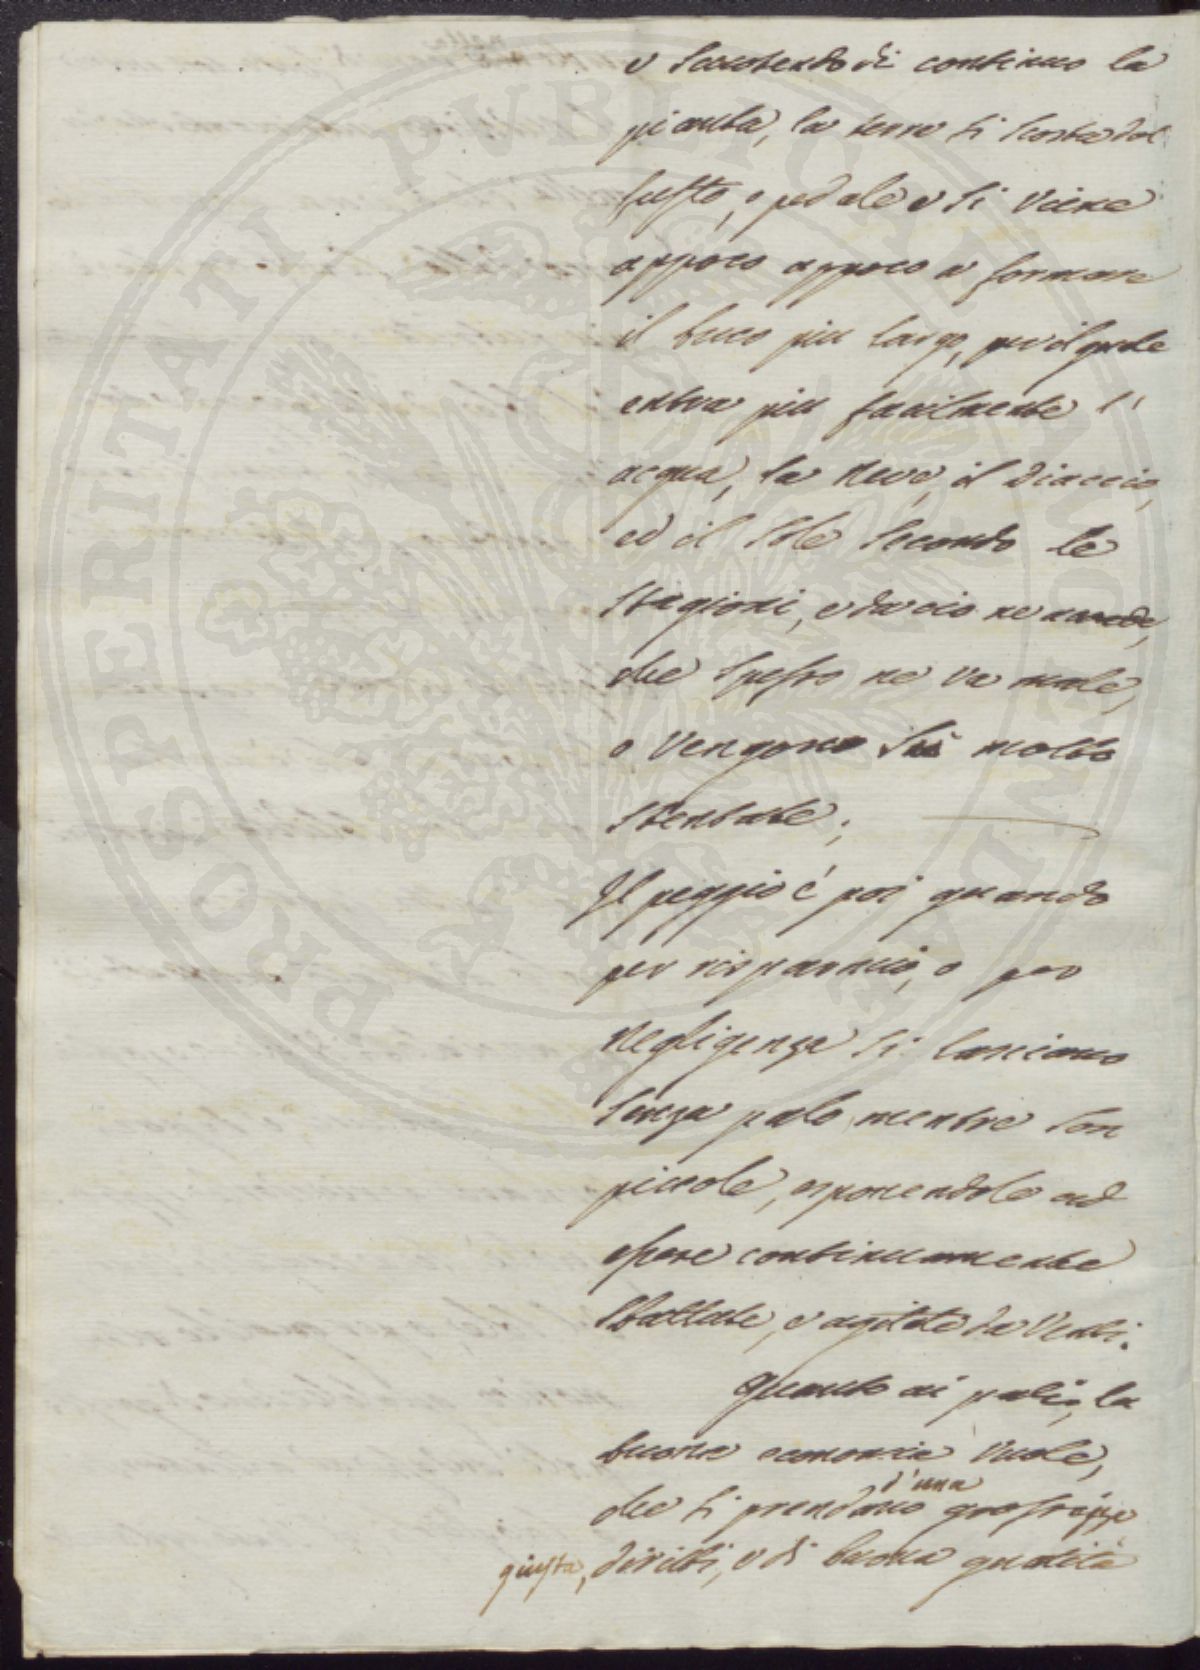 e scuotendo di continuo la
pianta, la terra si scosta dal
fusto, o pedale e si viene
appoco appoco a formare
il buco piu largo, per il quale
entra piu facilmente l'
acqua, la neve, il diaccio,
ed il sole secondo le
stagioni, e da cio ne
che spesso ne va male,
o vengono su molto
stentate;
Il peggio é poi quando
per risparmio, o per
negligenza si lasciano
senza palo mentre son
piccole, esponendole ad
essere continuamente
sbattute, e agitate da Venti.
Quanto ai pali, la
buona economia vuole,
che si prendano d'una grossezza
giusta, diritti, e di buona qualità
PROSPERITATI PVBLICAE AVGENDAE